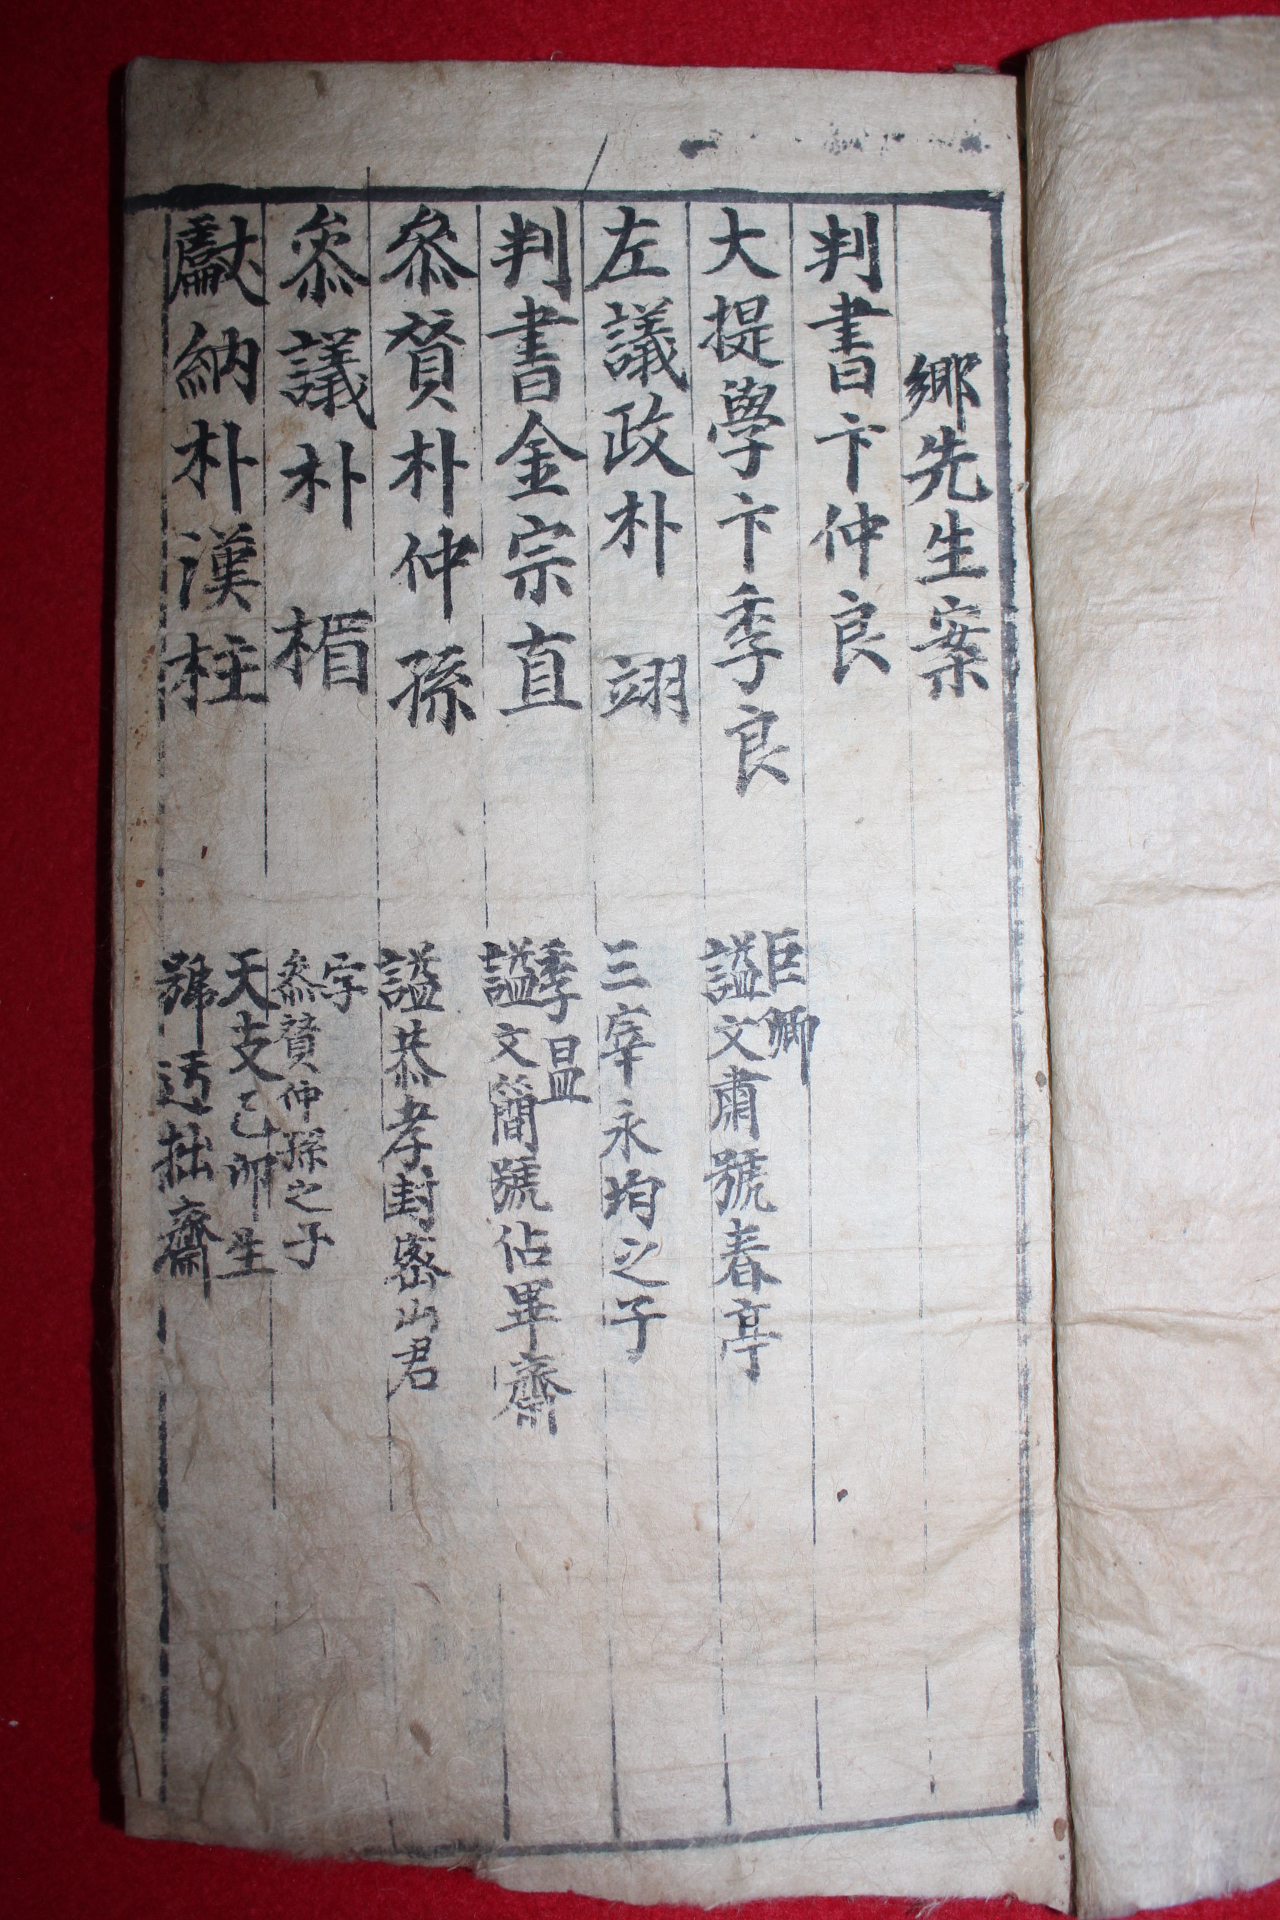 鄕先生案
判書卞仲良
大提學卞季良
巨卿
謚文肅號春亭
左議政朴翊
三宰永均之子
判書金宗直
季昷
謚文簡號佔畢齋
叅贊朴仲孫
謚恭孝封密山君
叅議朴楣
字
叅贊仲孫之子
獻納朴漢柱
天支己卯生
號迃拙齋